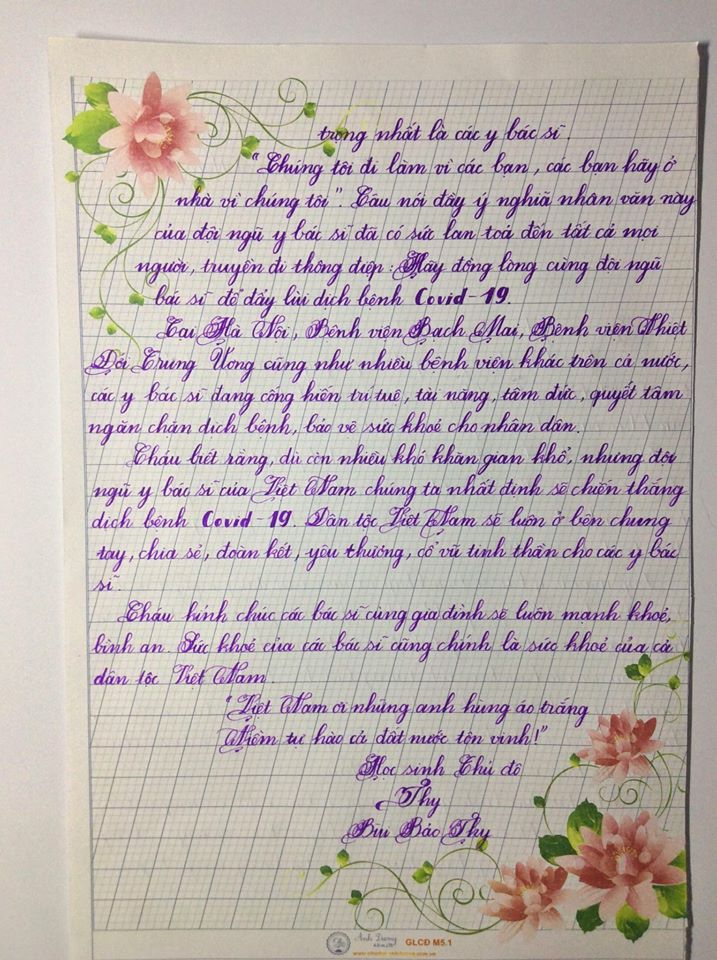 trọng nhất là các y bác sĩ.
"Chúng tôi đi làm vì các bạn, các bạn hãy ở
nhà vì chúng tôi". Câu nói đầy ý nghĩa nhân văn này
của đội ngũ y bác sĩ đã có sức lan toả đến tất cả mọi
người, truyền đi thông điệp: Hãy đồng lòng cùng đội ngũ
bác sĩ để đẩy lùi dịch bệnh Covid-19.
Tại Hà Nội, Bệnh viện Bạch Mai, Bệnh viện Nhiệt
Đới Trung Ương cũng như nhiều bệnh viện khác trên cả nước,
các y bác sĩ đang cống hiến trí tuệ, tài năng, tâm đức, quyết tâm
ngăn chặn dịch bệnh, bảo vệ sức khoẻ cho nhân dân.
Cháu biết rằng, dù còn nhiều khó khăn gian khổ, nhưng đội
ngũ y bác sĩ của Việt Nam chúng ta nhất định sẽ chiến thắng
dịch bệnh Covid-19. Dân tộc Việt Nam sẽ luôn ở bên chung
tay, chia sẻ, đoàn kết, yêu thương, cổ vũ tinh thần cho các y bác
sĩ.
Cháu kính chúc các bác sĩ cùng gia đình sẽ luôn mạnh khoẻ,
bình an. Sức khoẻ của các bác sĩ cũng chính là sức khoẻ của cả
dân tộc Việt Nam.
"Việt Nam ơi những anh hùng áo trắng
Niềm tự hào cả đất nước tôn vinh!"
Học sinh Thủ đô
Thy
Bùi Bảo Thy
Ánh Dương
GLCĐ M5.1